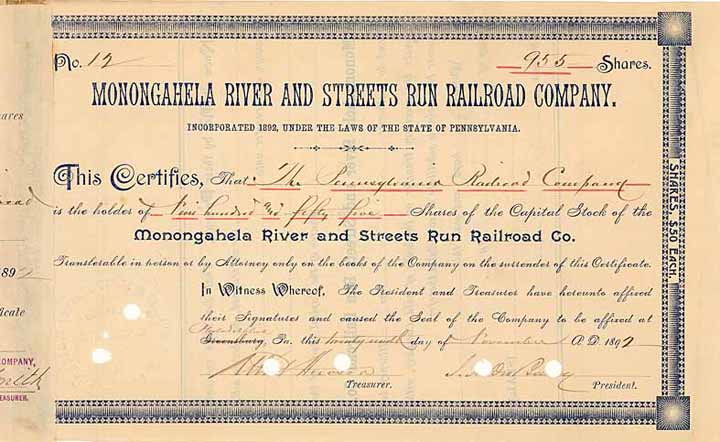 No. 12
955 Shares.
MONONGAHELA RIVER AND STREETS RUN RAILROAD COMPANY.
INCORPORATED 1892, UNDER THE LAWS OF THE STATE OF PENNSYLVANIA.
This Certifies, That The Pennsylvania Railroad Company
is the holder of Nine hundred and fifty five Shares of the Capital Stock of the
Monongahela River and Streets Run Railroad Co.
Transferable in person or by Attorney only on the books of the Company on the surrender of this Certificate.
In Witness Whereof, The President and Treasurer have hereunto affixed
their Signatures and caused the Seal of the Company to be affixed at
Philadelphia
Greensburg, Pa. this twenty ninth day of November A.D. 1892
Treasurer.
President.
SHARES, $50 EACH.
ares
1892
ificate
COMPANY,
TREASURER.